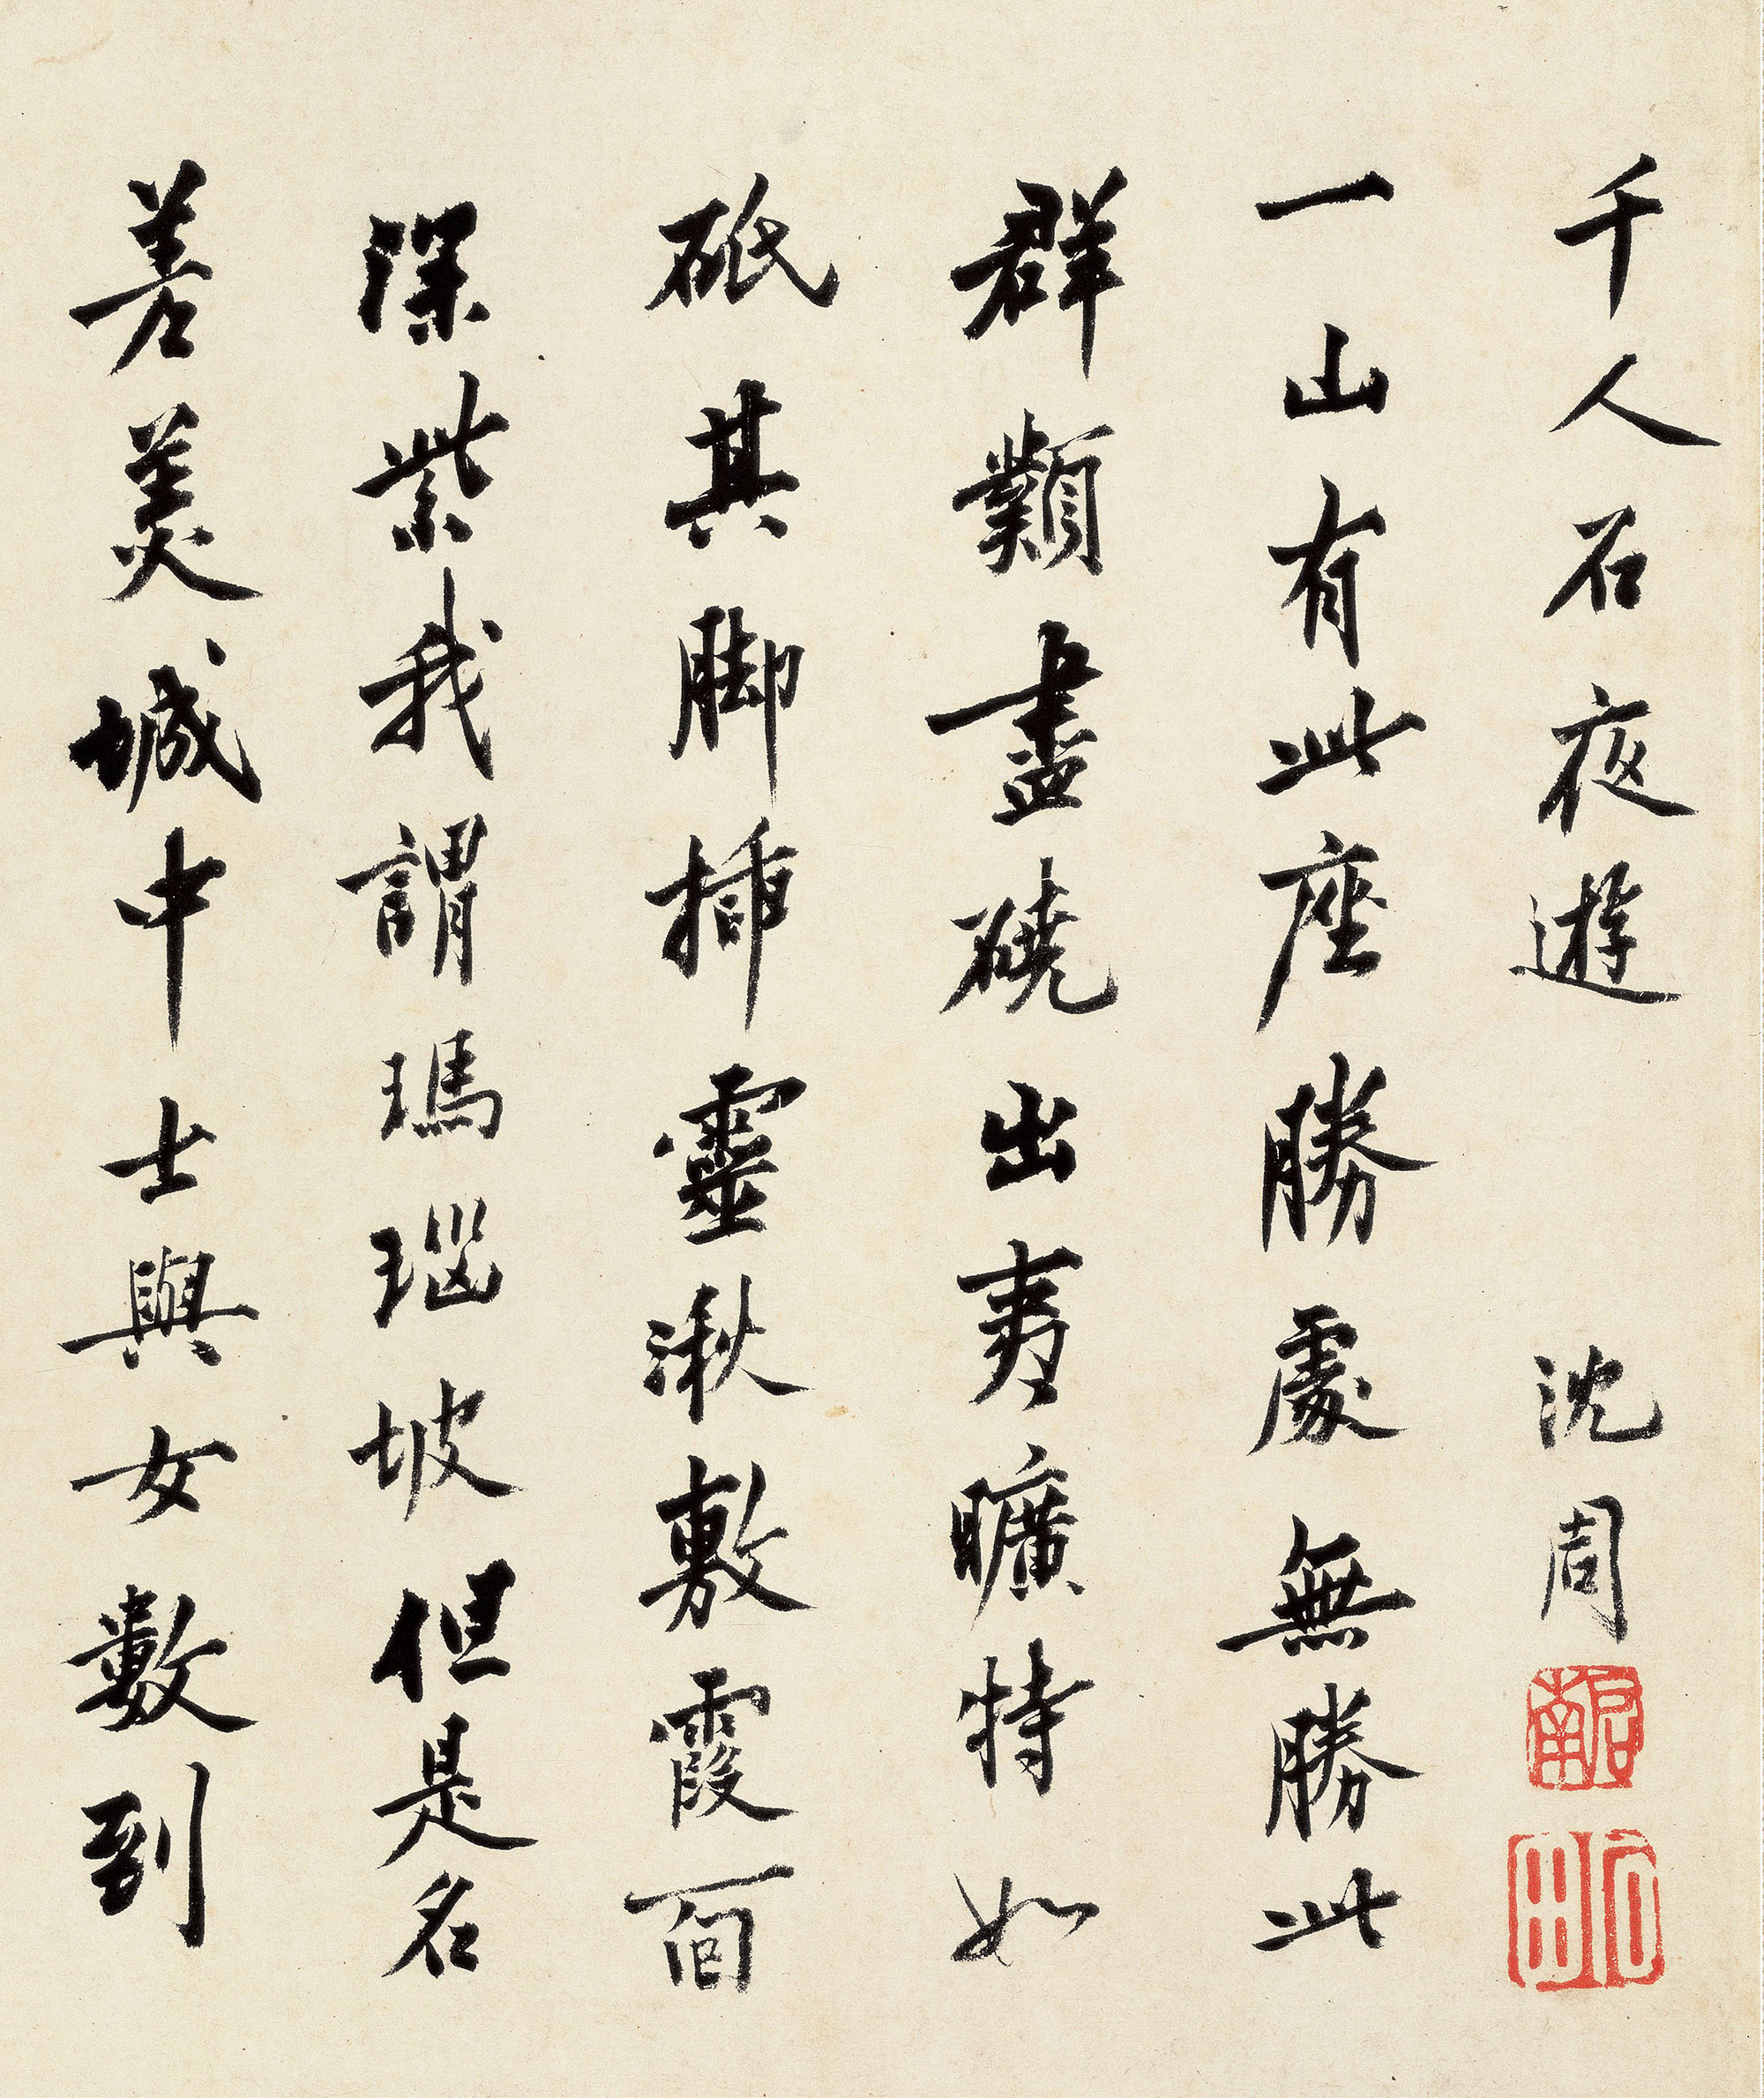 千人石夜遊 沈周
啟南
石田
一山有此座勝處無勝此
群類盡磽出夷曠特如
砥其脚揷靈湫敷霞面
深紫我謂瑪瑙坡但是名
差美城中士與女數到